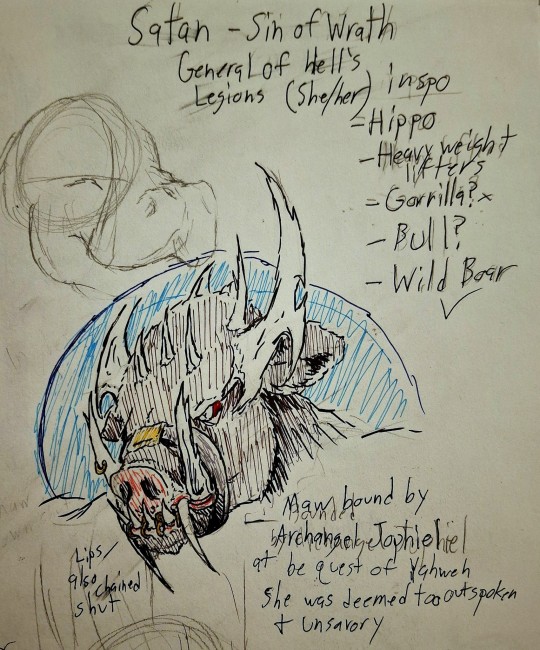 Satan - Sin of Wrath
General of Hell's
Legions (She/her)
inspo
= Hippo
- Heavy weight
lifters
= Gorrilla? x
- Bull?
- Wild Boar
✓
Maw bound by
Archangel Jophiel
at be quest of Yahweh
She was deemed too outspoken
+ unsavory
Lips/
also chained
shut